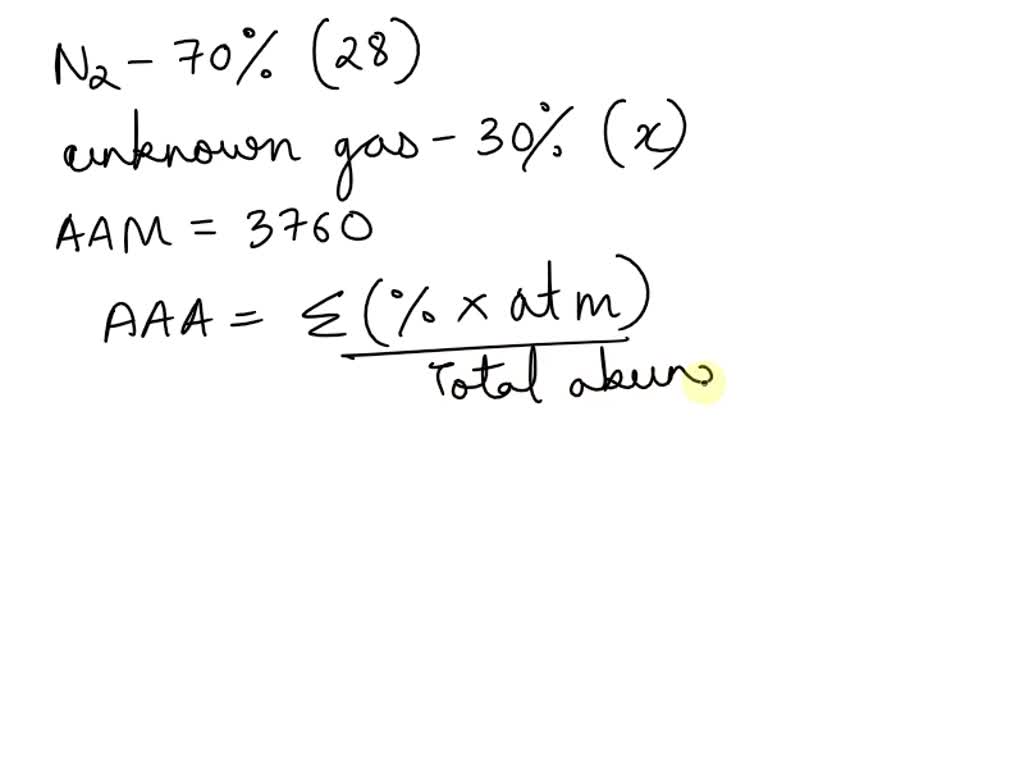 N2 - 70% (28)
unknown gas - 30% (x)
AAM = 3760
AAA = Σ(% x atm)
Total abun